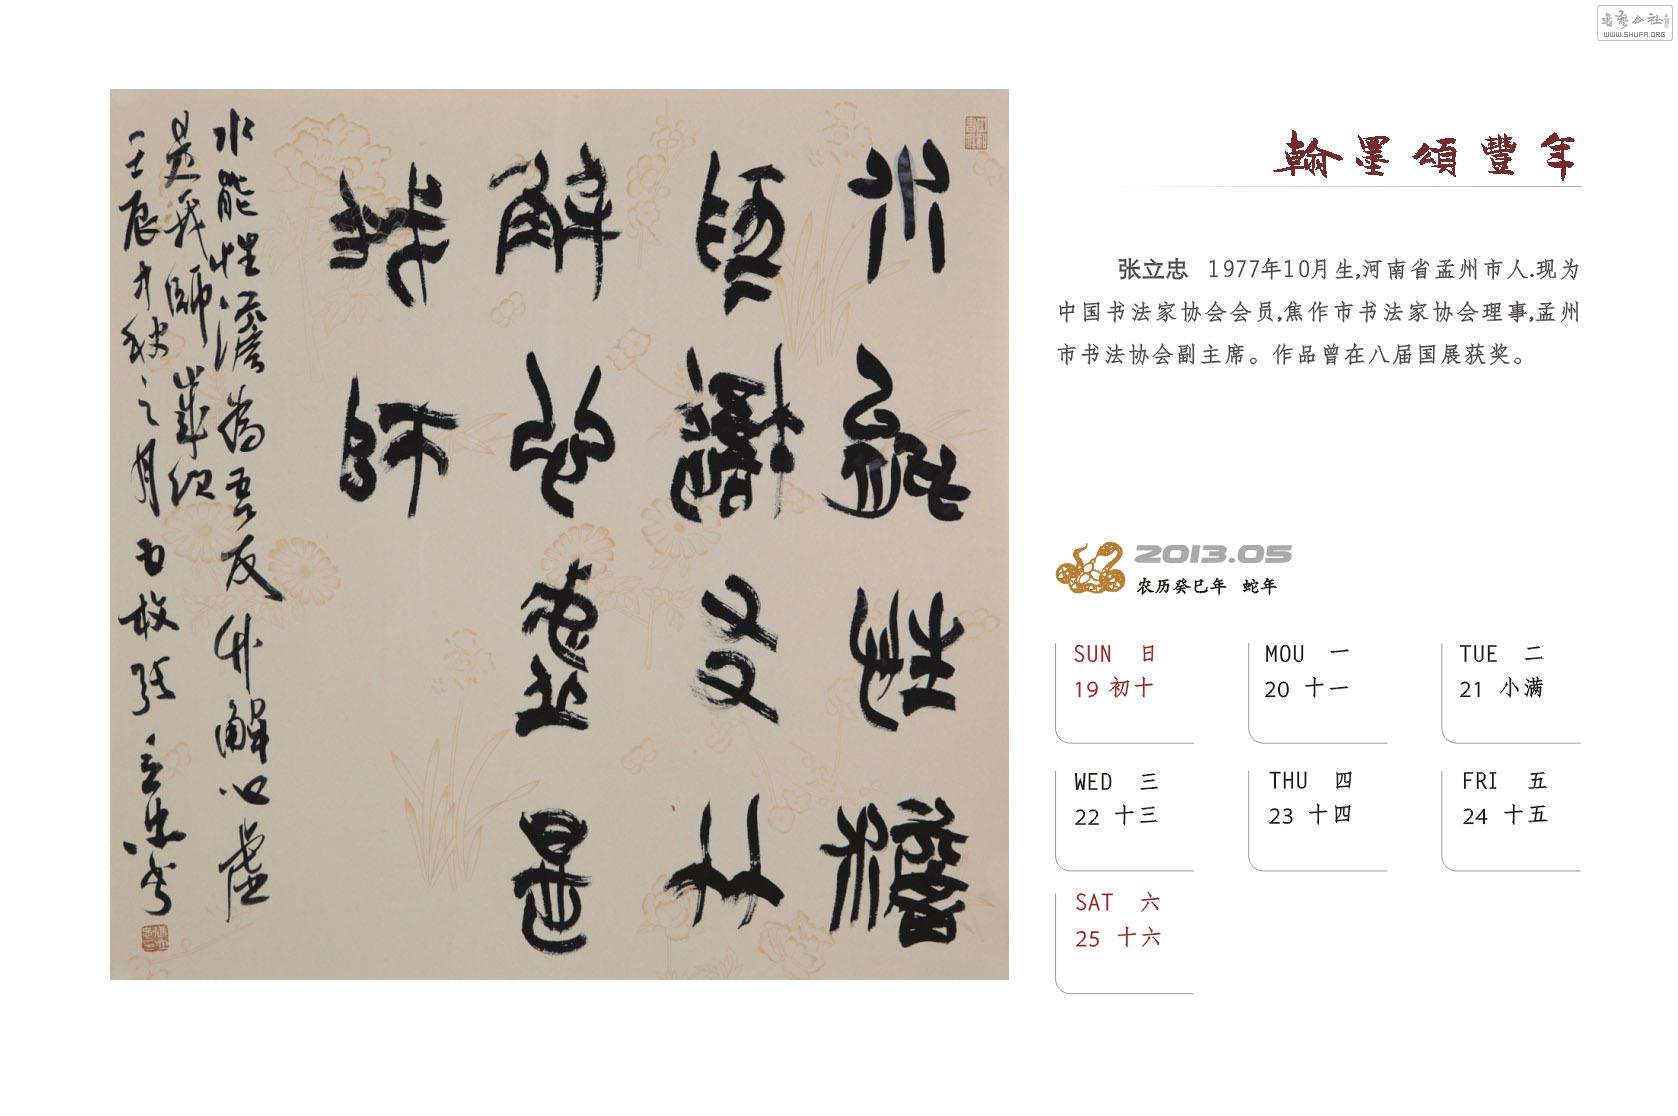 水能性澹
為吾友竹
解心虚是
我師
水能性澹為吾友竹解心虚
是我師 歲
壬辰秋之月張立忠書
翰墨頌豐年
张立忠 1977年10月生,河南省孟州市人.现为
中国书法家协会会员,焦作市书法家协会理事,孟州
市书法协会副主席。作品曾在八届国展获奖。
2013.05
农历癸巳年 蛇年
SUN 日
19 初十
MOU 一
20 十一
TUE 二
21 小满
WED 三
22 十三
THU 四
23 十四
FRI 五
24 十五
SAT 六
25 十六
WWW.SHUFA.ORG